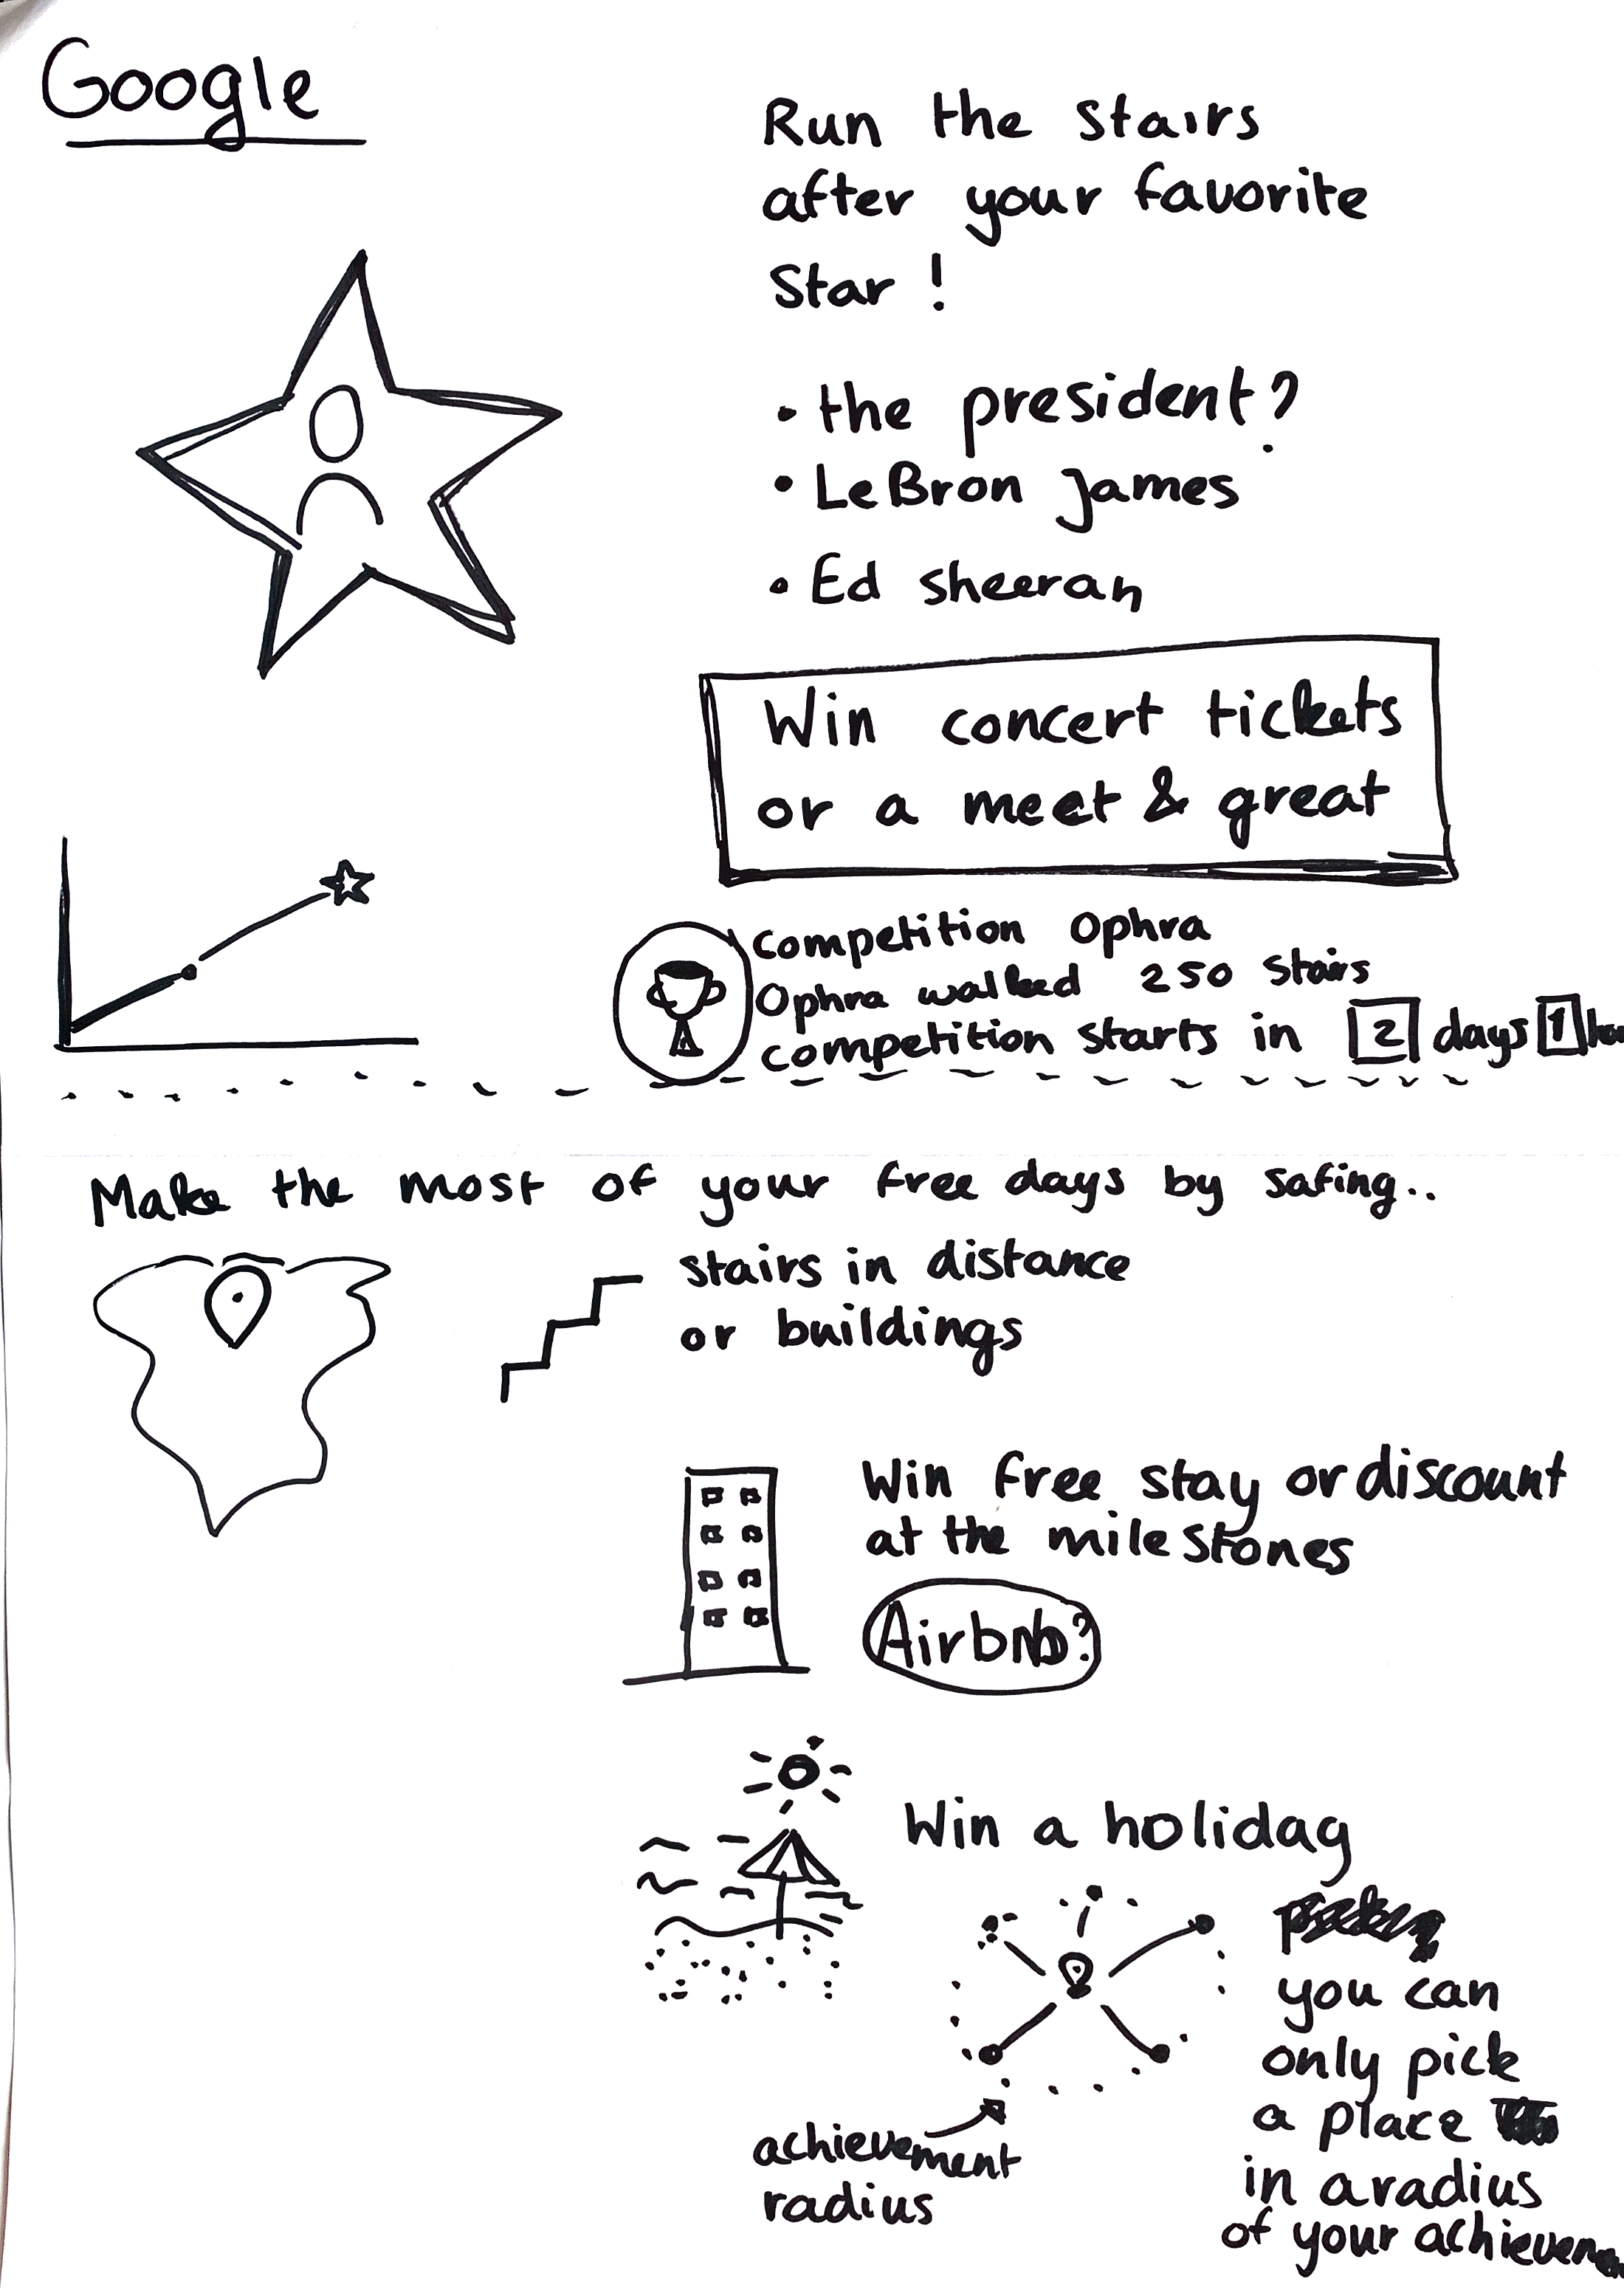 Google
Run the stairs
after your favorite
Star !
• the president?
• LeBron James
• Ed sheeran
Win concert tickets
or a meet & great
competition Ophra
Ophra walked 250 stairs
competition starts in 2 days 1
Make the most of your free days by safing..
stairs in distance
or buildings
Win free stay or discount
at the milestones
Airbnb?
Win a holiday
you can
only pick
a place
in a radius
of your
achievement
radius